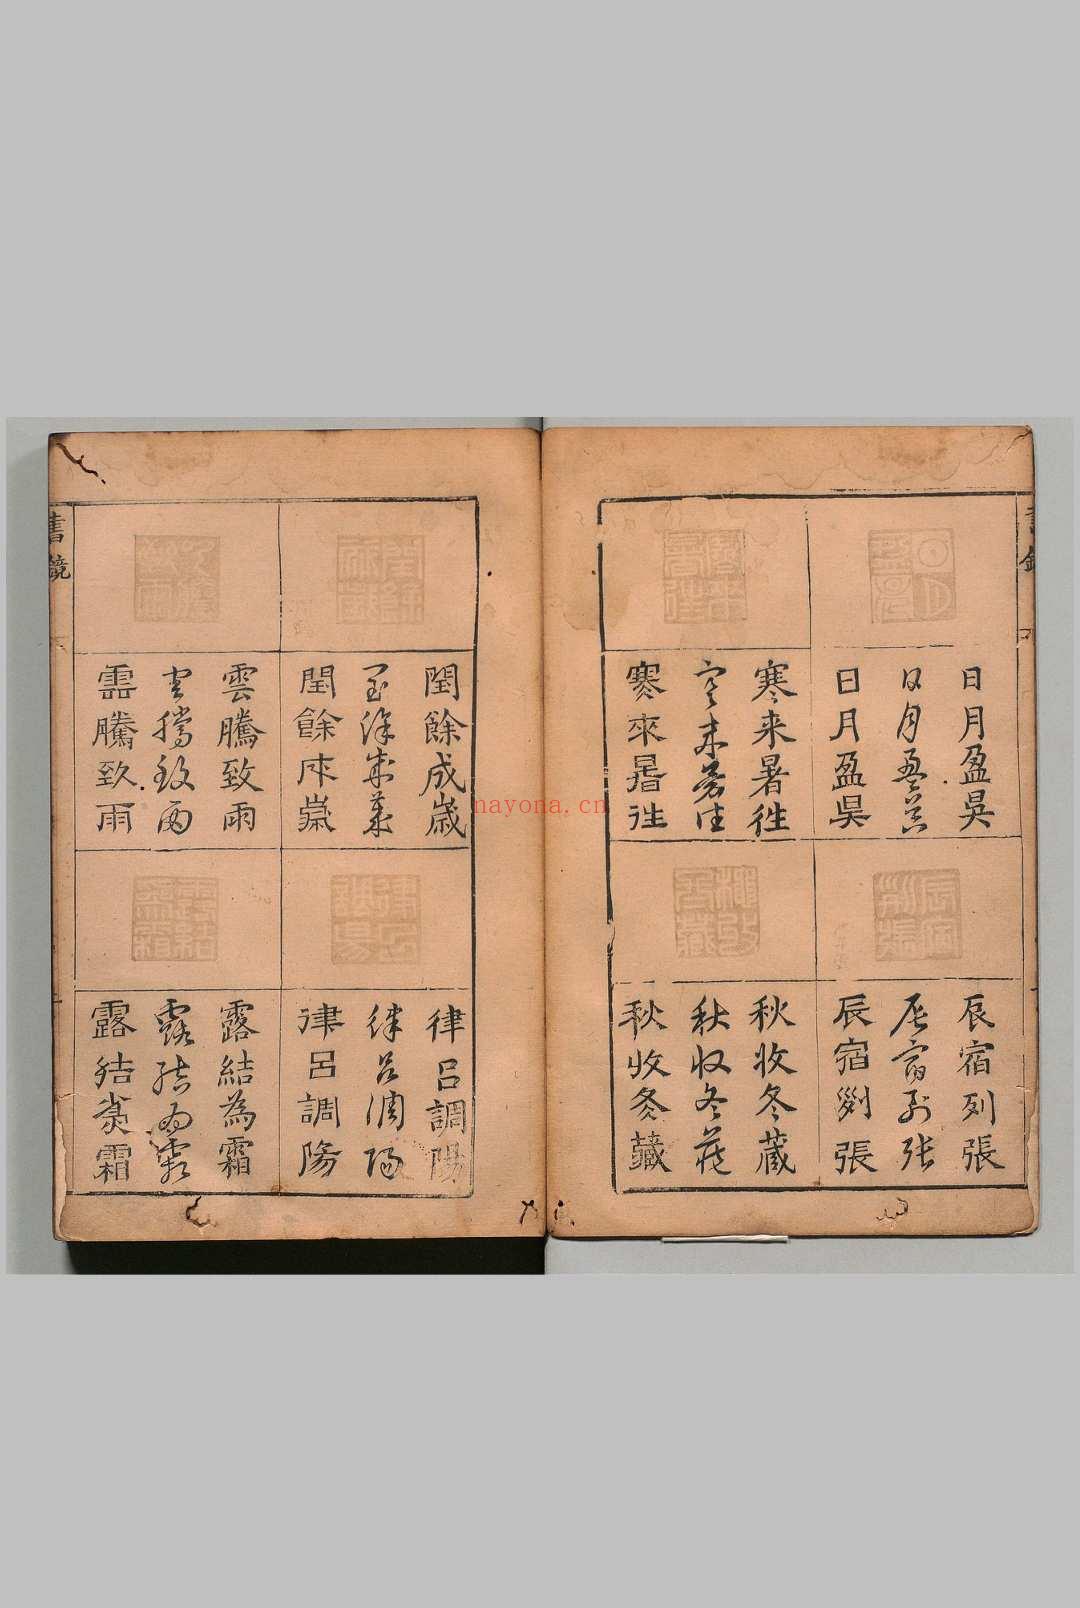 書鏡
日月盈昃
日月盈昃
日月盈昃
寒来暑往
寒来暑往
寒來暑往
辰宿列張
辰宿列張
辰宿列張
秋收冬藏
秋收冬藏
秋收冬藏
閏餘成歲
閏餘成歲
閏餘成歲
雲騰致雨
雲騰致雨
雲騰致雨
律呂調陽
律呂調陽
律呂調陽
露結為霜
露結為霜
露結為霜
書鏡
nayona.cn